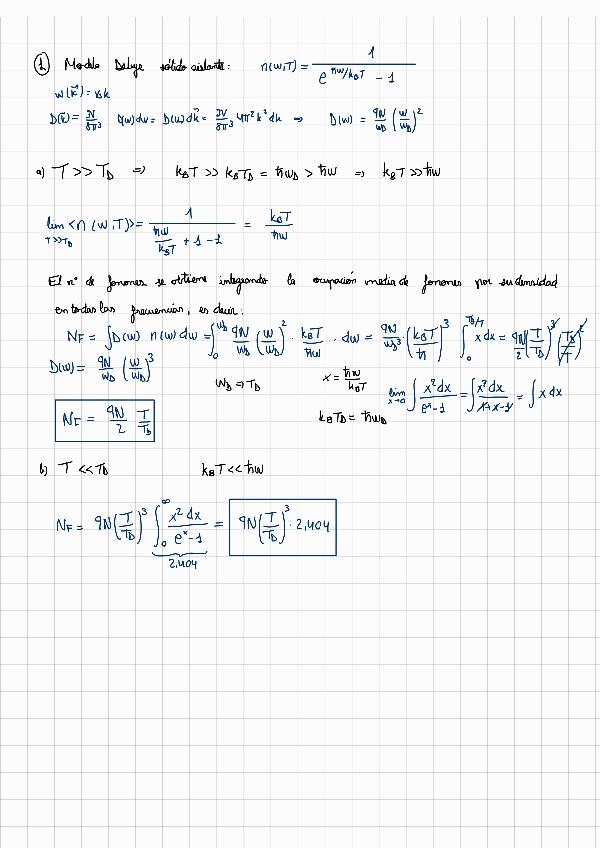 1 Modelo Debye sólido aislante: n(w,T) = 1 / (e^{ħw/k_BT} - 1)
w(k⃗) = v_s k
D(k⃗) = 3V/8π³ D(w)dw = D(w)dk⃗ = 3V/8π³ 4π²k³dk ⇒ D(w) = 9N/w_D (w/w_D)²
a) T >> T_D ⇒ k_BT >> k_BT_D = ħw_D > ħw ⇒ k_BT >> ħw
lim_{T>>T_D} <n(w,T)> = 1 / (ħw/k_BT + 1 - 1) = k_BT/ħw
El nº de fonones se obtiene integrando la ocupación media de fonones por su densidad
en todas las frecuencias, es decir:
N_F = ∫D(w) n(w) dw = ∫_0^{w_D} 9N/w_D (w/w_D)² · k_BT/ħw · dw = 9N/w_D³ (k_BT/ħ)³ ∫_0^{T_D/T} x dx = 9N/2 (T/T_D)³ (T_D/T)²
D(w) = 9N/w_D (w/w_D)³ w_D ⇒ T_D x = ħw/k_BT lim_{x→0} ∫ x²dx/(e^x - 1) = ∫ x²dx/(1 + x - 1) = ∫ x dx
N_F = 9N/2 T/T_D k_BT_D = ħw_D
b) T << T_D k_BT << ħw
N_F = 9N(T/T_D)³ ∫_0^∞ x²dx/(e^x - 1) = 9N(T/T_D)³ · 2,404
2,404